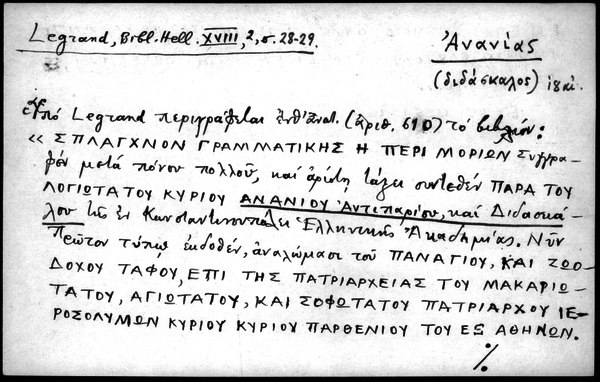 Legrand, Bibl. Hell. XVIII, 2, σ. 28-29.
Ἀνανίας
(διδάσκαλος) ιηαἰ.
Ὑπό Legrand περιγράφεται ἐνθ' ἀνωτ. (ἀριθ. 610) τό βιβλίον:
« ΣΠΛΑΓΧΝΟΝ ΓΡΑΜΜΑΤΙΚΗΣ Η ΠΕΡΙ ΜΟΡΙΩΝ Συγγρα-
φέν μετά πόνου πολλοῦ, καί ἀρίστῃ τάξει συντεθέν ΠΑΡΑ ΤΟΥ
ΛΟΓΙΩΤΑΤΟΥ ΚΥΡΙΟΥ ΑΝΑΝΙΟΥ Ἀντιπαρίου, καί Διδασκά-
λου τῆς ἐν Κωνσταντινουπόλει Ἑλληνικῆς Ἀκαδημίας. Νῦν
πρῶτον τύπῳ ἐκδοθέν, ἀναλώμασι τοῦ ΠΑΝΑΓΙΟΥ, ΚΑΙ ΖΩΟ-
ΔΟΧΟΥ ΤΑΦΟΥ, ΕΠΙ ΤΗΣ ΠΑΤΡΙΑΡΧΕΙΑΣ ΤΟΥ ΜΑΚΑΡΙΩ-
ΤΑΤΟΥ, ΑΓΙΩΤΑΤΟΥ, ΚΑΙ ΣΟΦΩΤΑΤΟΥ ΠΑΤΡΙΑΡΧΟΥ ΙΕ-
ΡΟΣΟΛΥΜΩΝ ΚΥΡΙΟΥ ΚΥΡΙΟΥ ΠΑΡΘΕΝΙΟΥ ΤΟΥ ΕΞ ΑΘΗΝΩΝ.
./.